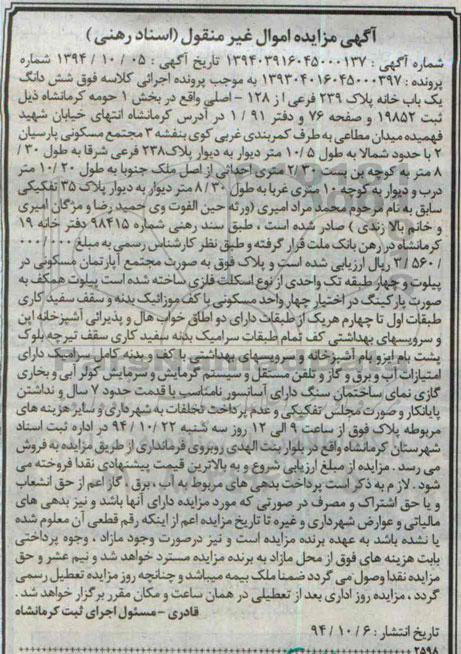 آگهی مزایده اموال غیر منقول (اسناد رهنی)
شماره آگهی : ۱۳۹۴۰۳۹۱۶۰۴۵۰۰۰۱۳۷ تاریخ آگهی : ۰۵ / ۱۰ / ۱۳۹۴ شماره
پرونده : ۱۳۹۳۰۴۰۱۶۰۴۵۰۰۰۳۹۷ به موجب پرونده اجرائی کلاسه فوق شش دانگ
یک باب خانه پلاک ۲۳۹ فرعی از ۱۲۸ - اصلی واقع در بخش ۱ حومه کرمانشاه ذیل
ثبت ۱۹۸۵۲ و صفحه ۷۶ و دفتر ۹۱ / ۱ در آدرس کرمانشاه انتهای خیابان شهید
فهمیده میدان مطاعی به طرف کمربندی غربی کوی بنفشه ۳ مجتمع مسکونی پارسیان
۲ با حدود شمالا به طول ۱۰/۵ متر دیوار به دیوار پلاک۲۳۸ فرعی شرقا به طول ۳۰ /
۸ متر به کوچه بن بست ۲/۶۰ متری احداثی از اصل ملک جنوبا به طول ۲۰ /۱۰ متر
درب و دیوار به کوچه ۱۰ متری غربا به طول ۳۰ / ۸ متر دیوار به دیوار پلاک ۳۵ تفکیکی
سابق به نام مرحوم محمد مراد امیری (ورثه حین الفوت وی حمید رضا و مژگان امیری
و خانم بالا زندی ) صادر شده است ، طبق سند رهنی شماره ۹۸۴۱۵ دفتر خانه ۱۹
کرمانشاه در رهن بانک ملت قرار گرفته و طبق نظر کارشناس رسمی به مبلغ ۰۰۰/۰۰۰
/ ۵۶۰ / ۳ ریال ارزیابی شده است و پلاک فوق به صورت مجتمع آپارتمان مسکونی در
پیلوت و چهار طبقه تک واحدی از نوع اسکلت فلزی ساخته شده است پیلوت همکف به
صورت پارکینگ در اختیار چهار واحد مسکونی با کف موزائیک بدنه و سقف سفید کاری
طبقات اول تا چهارم هریک از طبقات دارای دو اطاق خواب هال و پذیرائی آشپزخانه اپن
و سرویسهای بهداشتی کف تمام طبقات سرامیک بدنه سفید کاری سقف تیرچه بلوک
پشت بام ایزو بام آشپزخانه و سرویسهای بهداشتی با کف و بدنه کامل سرامیک دارای
امتیازات آب و برق و گاز و تلفن مستقل و سیستم گرمایش و سرمایش کولر آبی و بخاری
گازی نمای ساختمان سنگ دارای آسانسور نامناسب با قدمت حدود ۷ سال و نداشتن
پایانکار و صورت مجلس تفکیکی و عدم پرداخت تخلفات به شهرداری و سایر هزینه های
مربوطه پلاک فوق از ساعت ۹ الی ۱۲ روز سه شنبه ۲۲ /۱۰ / ۹۴ در اداره ثبت اسناد
شهرستان کرمانشاه واقع در بلوار بنت الهدی روبروی فرمانداری از طریق مزایده به فروش
می رسد . مزایده از مبلغ ارزیابی شروع و به بالاترین قیمت پیشنهادی نقدا فروخته می
شود . لازم به ذکر است پرداخت بدهی های مربوط به آب ، برق ، گاز اعم از حق انشعاب
و یا حق اشتراک و مصرف در صورتی که مورد مزایده دارای آنها باشد و نیز بدهی های
مالیاتی و عوارض شهرداری و غیره تا تاریخ مزایده اعم از اینکه رقم قطعی آن معلوم شده
یا نشده باشد به عهده برنده مزایده است و نیز درصورت وجود مازاد ، وجوه پرداختی
بابت هزینه های فوق از محل مازاد به برنده مزایده مسترد خواهد شد و نیم عشر و حق
مزایده نقدا وصول می گردد ضمنا ملک بیمه میباشد و چنانچه روز مزایده تعطیل رسمی
گردد ، مزایده روز اداری بعد از تعطیلی در همان ساعت و مکان مقرر برگزار خواهد شد .
قادری - مسئول اجرای ثبت کرمانشاه
تاریخ انتشار : ۶ / ۱۰ / ۹۴
۲۵۹۸